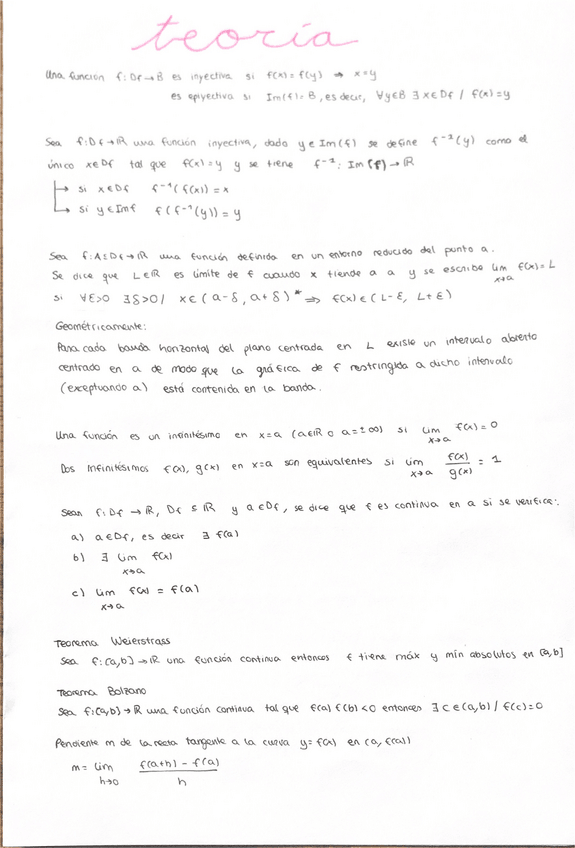 teoría
Una función f: Df → B es inyectiva si f(x) = f(y) ⇒ x=y
es epiyectiva si Im(f) = B, es decir, ∀y∈B ∃ x∈Df / f(x) = y
Sea f: Df → ℝ una función inyectiva, dado y∈Im(f) se define f⁻¹(y) como el
único x∈Df tal que f(x) = y y se tiene f⁻¹: Im(f) → ℝ
↳ si x∈Df f⁻¹(f(x)) = x
↳ si y∈Imf f(f⁻¹(y)) = y
Sea f: A⊆Df → ℝ una función definida en un entorno reducido del punto a.
Se dice que L∈ℝ es límite de f cuando x tiende a a y se escribe lim x→a f(x) = L
si ∀ε>0 ∃δ>0 / x∈(a-δ, a+δ)* ⇒ f(x)∈(L-ε, L+ε)
Geométricamente:
Para cada banda horizontal del plano centrada en L existe un intervalo abierto
centrado en a de modo que la gráfica de f restringida a dicho intervalo
(exceptuando a) está contenida en la banda.
Una función es un infinitésimo en x=a (a∈ℝ o a=±∞) si lim x→a f(x) = 0
Dos infinitésimos f(x), g(x) en x=a son equivalentes si lim x→a f(x)/g(x) = 1
Sean f: Df → ℝ, Df ⊆ ℝ y a∈Df, se dice que f es continua en a si se verifica:
a) a∈Df, es decir ∃ f(a)
b) ∃ lim x→a f(x)
c) lim x→a f(x) = f(a)
Teorema Weierstrass
Sea f: [a,b] → ℝ una función continua entonces f tiene máx y mín absolutos en [a,b]
Teorema Bolzano
Sea f: [a,b] → ℝ una función continua tal que f(a) f(b) < 0 entonces ∃ c∈(a,b) / f(c) = 0
Pendiente m de la recta tangente a la curva y = f(x) en (a, f(a))
m = lim h→0 f(a+h) - f(a) / h